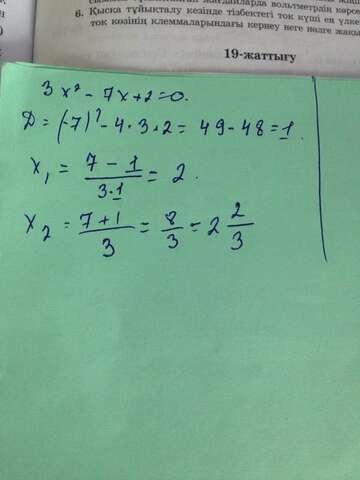 6. Қысқа тұйықталу кезінде тізбектегі ток күші ең үлке
ток көзінің клеммаларындағы кернеу неге нөлге жақы
19-жаттығу
3x² - 7x + 2 = 0.
D = (-7)² - 4·3·2 = 49 - 48 = 1
x₁ = (7 - 1)/(3·1) = 2.
x₂ = (7 + 1)/3 = 8/3 = 2 2/3